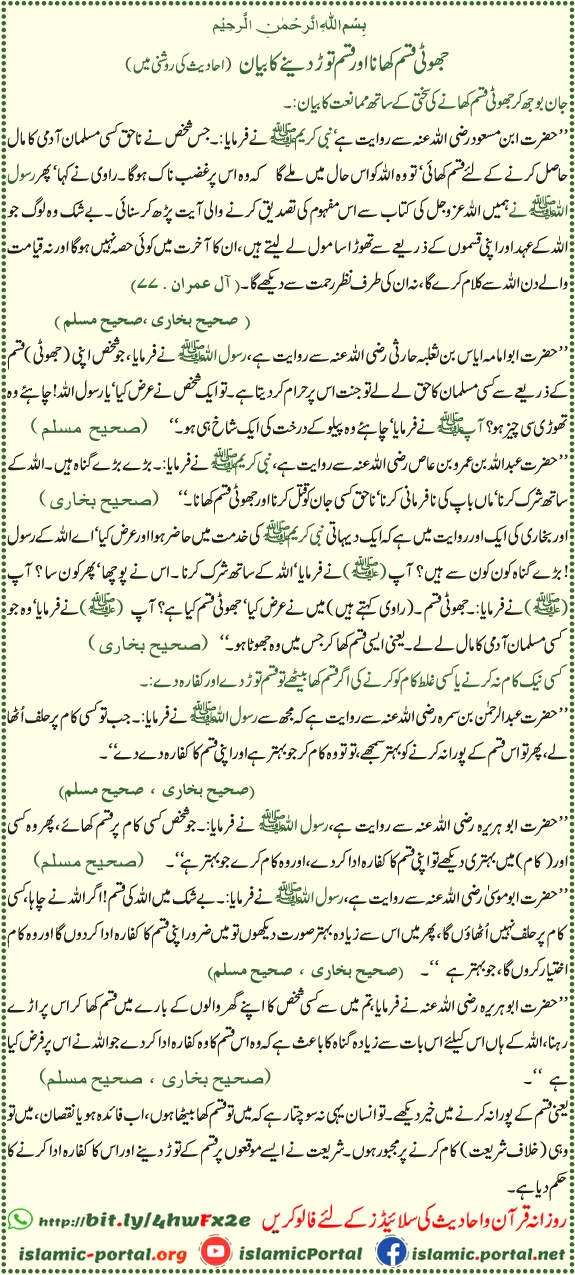 بِسْمِ اللهِ الرَّحْمٰنِ الرَّحِيْمِ
جھوٹی قسم کھانا اور قسم توڑ دینے کا بیان (احادیث کی روشنی میں)
جان بوجھ کر جھوٹی قسم کھانے کی سختی کے ساتھ ممانعت کا بیان:۔
’’حضرت ابن مسعود رضی اللہ عنہ سے روایت ہے‘ نبی کریم ﷺ نے فرمایا:۔جس شخص نے ناحق کسی مسلمان آدمی کا مال
حاصل کرنے کے لئے قسم کھائی‘ تو وہ اللہ کو اس حال میں ملے گا کہ وہ اس پر غضب ناک ہوگا۔راوی نے کہا‘ پھر رسول
اللہ ﷺ نے ہمیں اللہ عزوجل کی کتاب سے اس مفہوم کی تصدیق کرنے والی آیت پڑھ کر سنائی۔بے شک وہ لوگ جو
اللہ کے عہد اور اپنی قسموں کے ذریعے سے تھوڑا سا مول لے لیتے ہیں،ان کا آخرت میں کوئی حصہ نہیں ہوگا اور نہ قیامت
والے دن اللہ سے کلام کرے گا،نہ ان کی طرف نظر رحمت سے دیکھے گا۔( آل عمران ۔ ۷۷)
( صحیح بخاری ،صحیح مسلم )
’’حضرت ابوامامہ ایاس بن ثعلبہ حارثی رضی اللہ عنہ سے روایت ہے،رسول اللہ ﷺ نے فرمایا،جو شخص اپنی (جھوٹی) قسم
کے ذریعے سے کسی مسلمان کا حق لے لے تو جنت اس پر حرام کر دیتا ہے۔تو ایک شخص نے عرض کیا‘ یا رسول اللہ! چاہئے وہ
تھوڑی سی چیز ہو؟ آپ ﷺ نے فرمایا‘ چاہئے وہ پیلو کے درخت کی ایک شاخ ہی ہو۔‘‘ (صحیح مسلم )
’’حضرت عبداللہ بن عمرو بن عاص رضی اللہ عنہ سے روایت ہے،نبی کریم ﷺ نے فرمایا:۔بڑے بڑے گناہ ہیں۔اللہ کے
ساتھ شرک کرنا‘ ماں باپ کی نافرمانی کرنا‘ ناحق کسی جان کو قتل کرنا اور جھوٹی قسم کھانا۔‘‘ (صحیح بخاری )
اور بخاری کی ایک اور روایت میں ہے کہ ایک دیہاتی نبی کریم ﷺ کی خدمت میں حاضر ہوا اور عرض کیا‘ اے اللہ کے رسول
! بڑے گناہ کون کون سے ہیں؟ آپ (ﷺ) نے فرمایا‘ اللہ کے ساتھ شرک کرنا۔اس نے پوچھا‘ پھر کون سا؟ آپ
(ﷺ) نے فرمایا:۔جھوٹی قسم۔(راوی کہتے ہیں) میں نے عرض کیا‘ جھوٹی قسم کیا ہے؟ آپ (ﷺ) نے فرمایا‘ وہ جو
کسی مسلمان آدمی کا مال لے لے۔یعنی ایسی قسم کھا کر جس میں وہ جھوٹا ہو۔‘‘ (صحیح بخاری )
کسی نیک کام نہ کرنے یا کسی غلط کام کو کرنے کی اگر قسم کھا بیٹھے تو قسم توڑ دے اور کفارہ دے:۔
’’حضرت عبدالرحمٰن بن سمرہ رضی اللہ عنہ سے روایت ہے کہ مجھ سے رسول اللہ ﷺ نے فرمایا:۔جب تو کسی کام پر حلف اُٹھا
لے،پھر تو اس قسم کے پورا نہ کرنے کو بہتر سمجھے،تو تو وہ کام کر جو بہتر ہے اور اپنی قسم کا کفارہ دے دے‘‘۔
(صحیح بخاری ، صحیح مسلم)
’’حضرت ابو ہریرہ رضی اللہ عنہ سے روایت ہے،رسول اللہ ﷺ نے فرمایا:۔جو شخص کسی کام پر قسم کھائے،پھر وہ کسی
اور (کام) میں بہتری دیکھے تو اپنی قسم کا کفارہ ادا کر دے،اور وہ کام کرے جو بہتر ہے‘‘۔ (صحیح مسلم)
’’حضرت ابوموسیٰ رضی اللہ عنہ سے روایت ہے،رسول اللہ ﷺ نے فرمایا:۔بے شک میں اللہ کی قسم! اگر اللہ نے چاہا،کسی
کام پر حلف نہیں اُٹھاؤں گا،پھر میں اس سے زیادہ بہتر صورت دیکھوں تو میں ضرور اپنی قسم کا کفارہ ادا کر دوں گا اور وہ کام
اختیار کروں گا،جو بہتر ہے ‘‘۔ (صحیح بخاری ، صحیح مسلم)
’’حضرت ابو ہریرہ رضی اللہ عنہ نے فرمایا،تم میں سے کسی شخص کا اپنے گھر والوں کے بارے میں قسم کھا کر اس پر اڑے
رہنا،اللہ کے ہاں اس کیلئے اس بات سے زیادہ گناہ کا باعث ہے کہ وہ اس قسم کا وہ کفارہ ادا کر دے جو اللہ نے اس پر فرض کیا
ہے ‘‘۔ (صحیح بخاری ، صحیح مسلم)
یعنی قسم کے پورا نہ کرنے میں خیر دیکھے۔تو انسان یہی نہ سوچتا رہے کہ میں تو قسم کھا بیٹھا ہوں،اب فائدہ ہو یا نقصان،میں تو
وہی (خلاف شریعت) کام کرنے پر مجبور ہوں۔شریعت نے ایسے موقعوں پر قسم کے توڑ دینے اور اس کا کفارہ ادا کرنے کا
حکم دیا ہے۔
روزانہ قرآن و احادیث کی سلائیڈز کے لئے فالو کریں http://bit.ly/4hwFx2e
islamic-portal.org islamicPortal islamic.portal.net